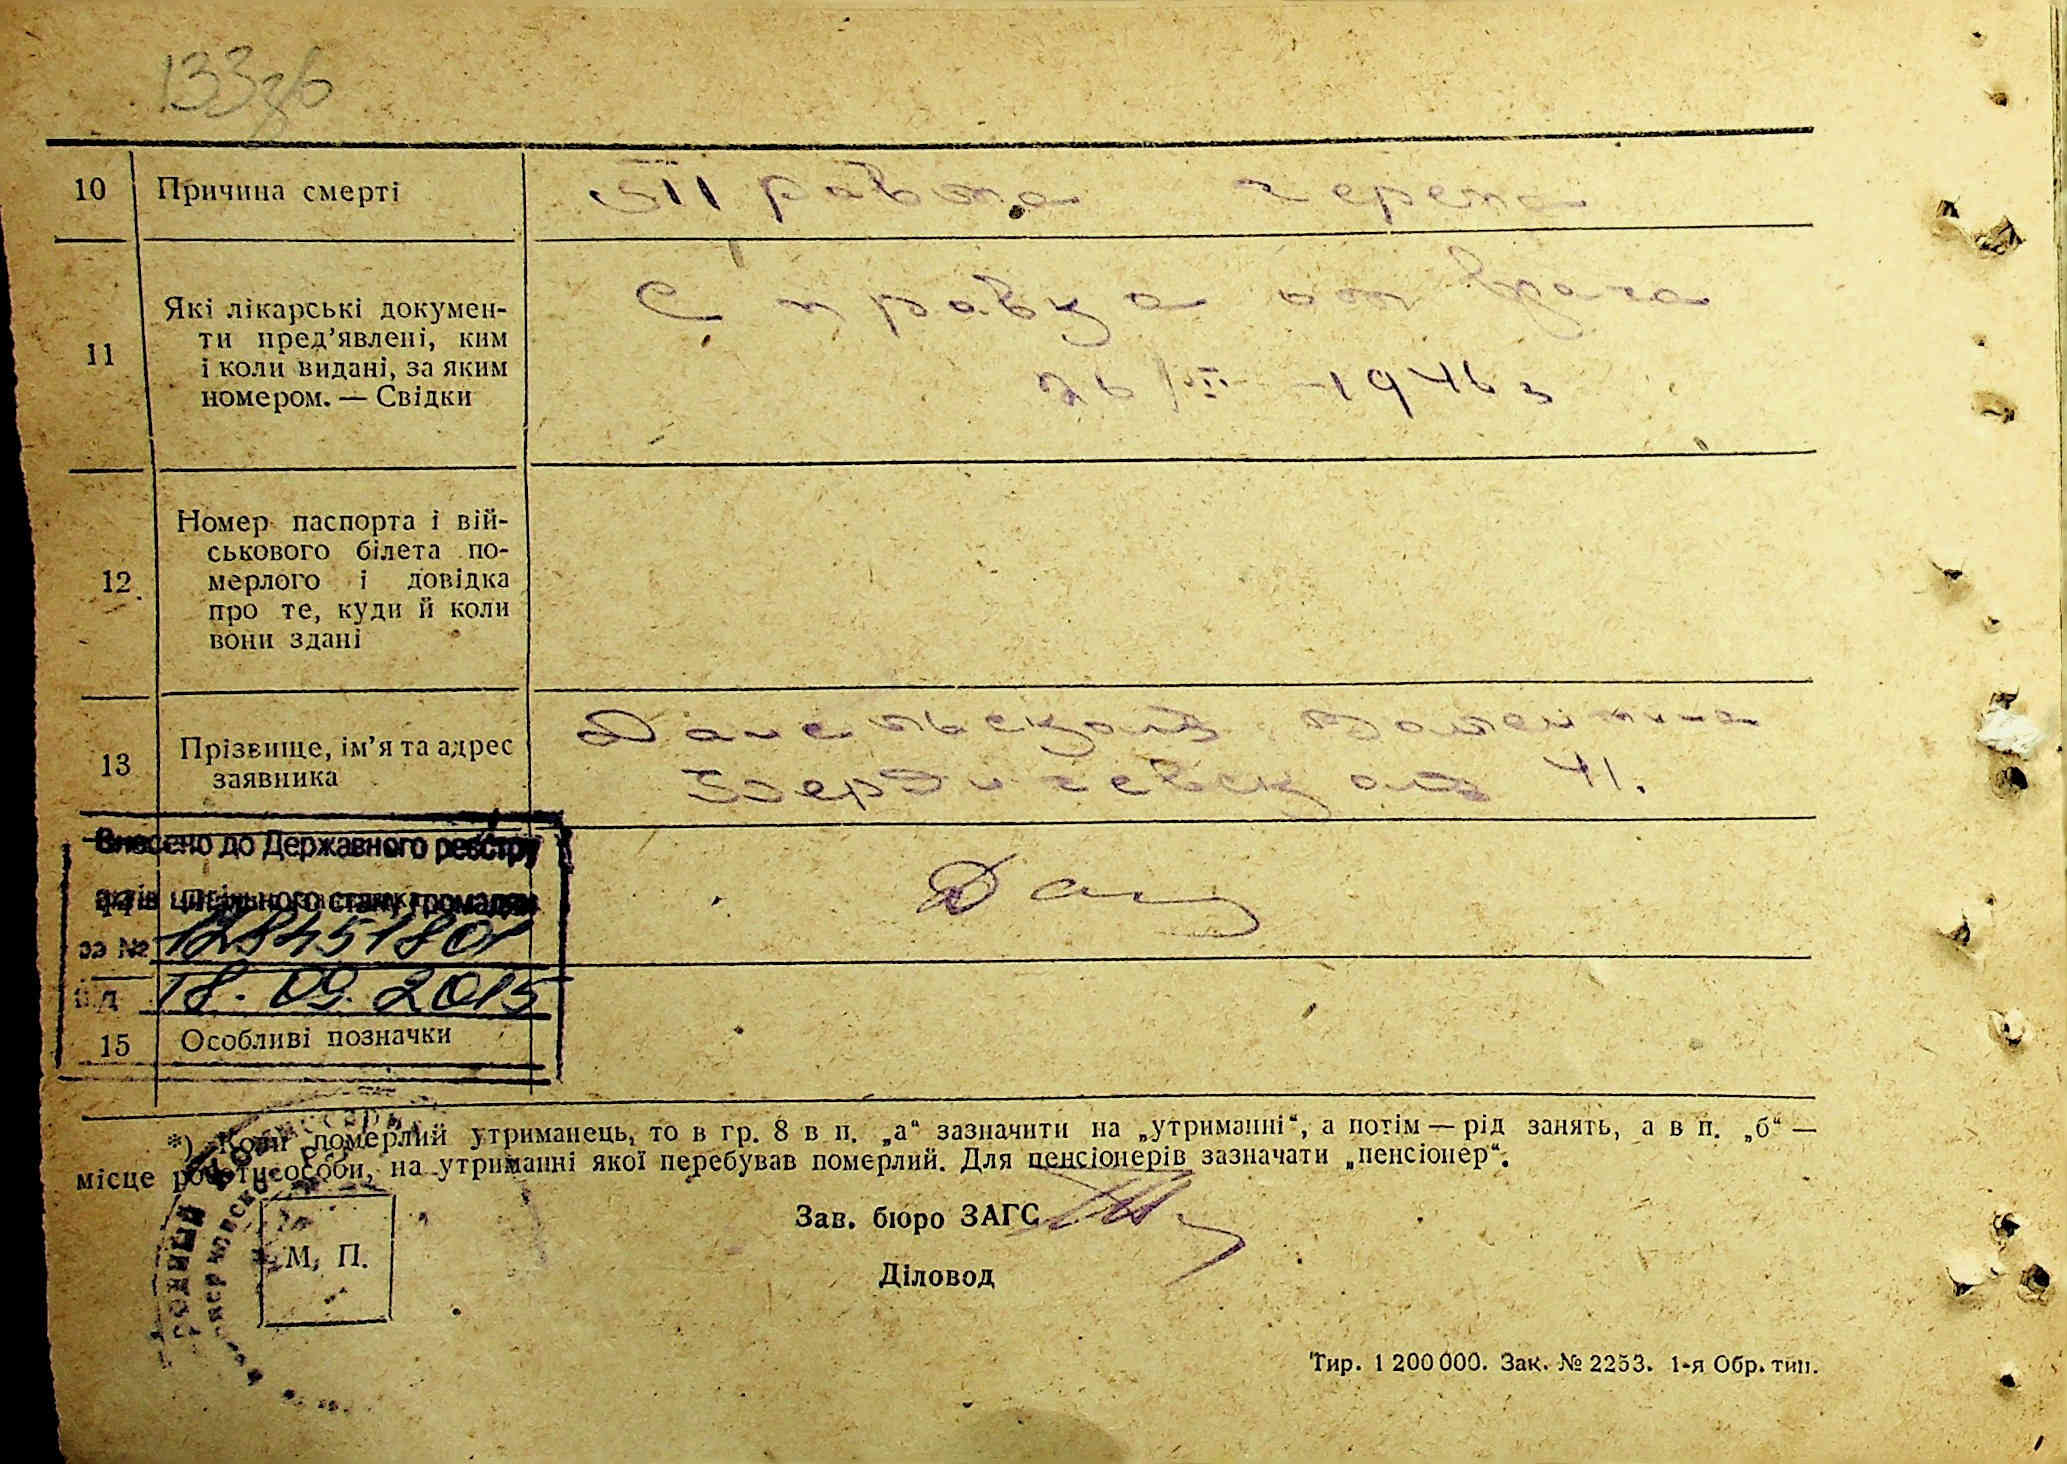 133зв
10 Причина смерті Травма черепа
11 Які лікарські докумен-
ти пред’явлені, ким
і коли видані, за яким
номером. — Свідки
Справка от врача
26 1946 г
12 Номер паспорта і вій-
ськового білета по-
мерлого і довідка
про те, куди й коли
вони здані
13 Прізвище, ім’я та адрес
заявника
Валентина
Бердичевская 41.
Внесено до Державного реєстру
актів цивільного стану громадян
за № 128451801
від 18.09.2015
15 Особливі позначки
*) Коли померлий утриманець, то в гр. 8 в п. „а“ зазначити на „утриманні“, а потім — рід занять, а в п. „б“ —
місце роботи особи, на утриманні якої перебував померлий. Для пенсіонерів зазначати „пенсіонер“.
Зав. бюро ЗАГС
М. П.
Діловод
Тир. 1 200 000. Зак. № 2253. 1-я Обр. тип.